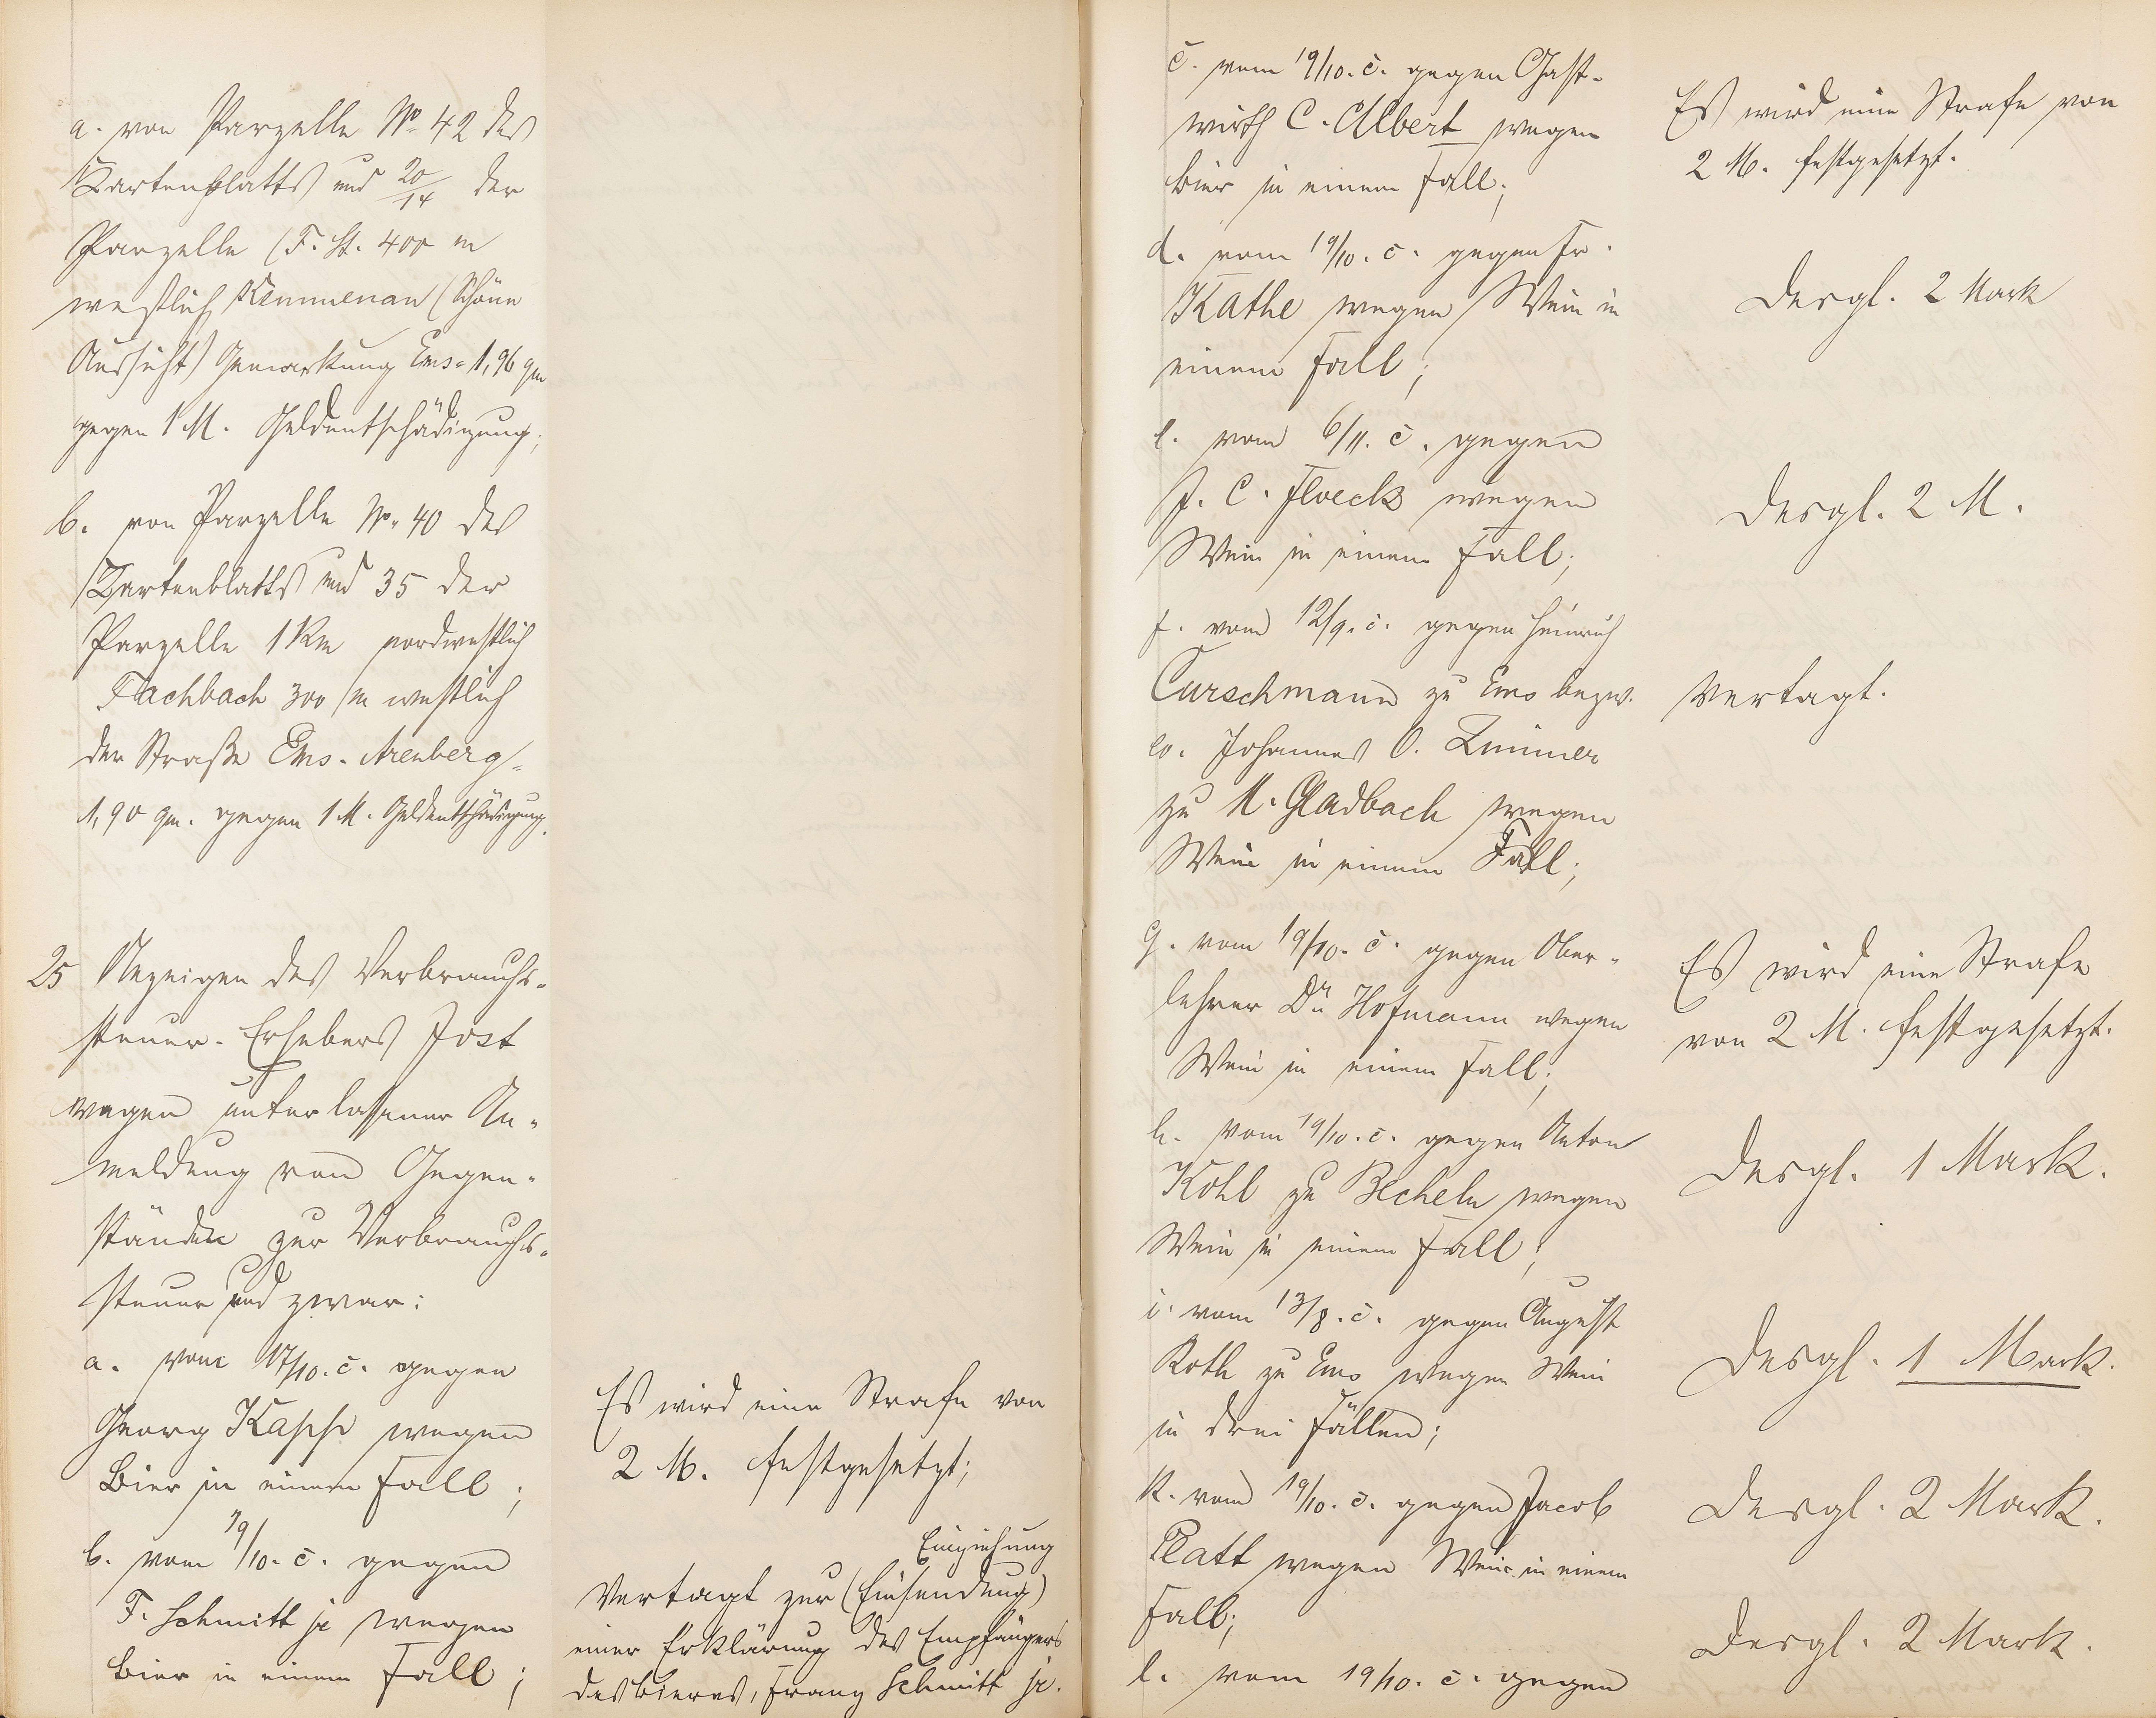 a. von Parzelle No 42 des
Kartenblatts und 20/14 der
Parzelle (F. St. 400 m
westlich Kemmenau (Schöne
Aussicht) Gemarkung Ems = 1,96 qm
gegen 1 M. Geldentschädigung;
b. von Parzelle No. 40 des
Kartenblatts und 35 der
Parzelle 1 Km nordwestlich
Fachbach 300 m westlich
der Straße Ems-Arenberg =
1,90 qm. gegen 1 M. Geldentschädigung.
25 Anzeigen des Verbrauchs-
steuer-Erhebers Jost
wegen unterlassener An-
meldung von Gegen-
ständen zur Verbrauchs-
steuer und zwar:
a. vom 17/10. c. gegen
Georg Kasper wegen
Bier in einem Fall;
b. vom 19/10. c. gegen
F. Schmitt jr wegen
Bier in einem Fall;
Es wird eine Strafe von
2 M. festgesetzt;
Einziehung
Vertagt zur (Einsendung)
einer Erklärung des Empfängers
des Bieres, Franz Schmitt jr.
c. vom 19/10. c. gegen Gast-
wirth C. Albert wegen
Bier in einem Fall;
d. vom 19/10. c. gegen Fr.
Kathe wegen Wein in
einem Fall;
e. vom 6/11. c. gegen
J. C. Floeck wegen
Wein in einem Fall;
f. vom 12/9. c. gegen Heinrich
Curschmann zu Ems bezw.
co. Johannes O. Zimmer
zu M. Gladbach wegen
Wein in einem Fall;
g. vom 19/10. c. gegen Ober-
lehrer Dr Hofmann wegen
Wein in einem Fall;
h. vom 19/10. c. gegen Anton
Kohl zu Becheln wegen
Wein in einem Fall;
i. vom 13/8. c. gegen August
Roth zu Ems wegen Wein
in drei Fällen;
k. vom 19/10. c. gegen Jacob
Platt wegen Wein in einem
Fall;
l. vom 19/10. c. gegen
Es wird eine Strafe von
2 M. festgesetzt.
Desgl. 2 Mark
Desgl. 2 M.
Vertagt.
Es wird eine Strafe
von 2 M. festgesetzt.
Desgl. 1 Mark.
Desgl. 1 Mark.
Desgl. 2 Mark.
Desgl. 2 Mark.